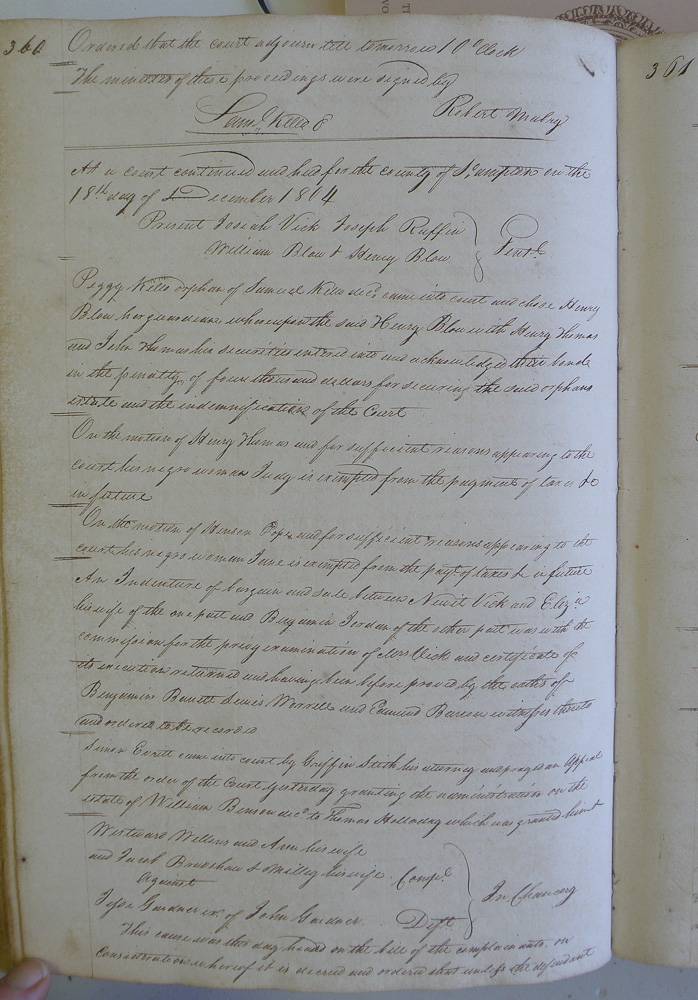 360
Ordered that the court adjourn till tomorrow 10 o'Clock
The minutes of these proceedings were signed by
Robert Mabry
Saml Kello
At a court continued and held for the county of So.ampton on the
18th day of December 1814
Present Josiah Vick Joseph Ruffin
William Blow & Henry Blow
Gent.
Peggy Kello orphan of Samuel Kello decd. came into court and chose Henry
Blow her guardian whereupon the said Henry Blow with Henry Thomas
and John Thomas his securities entered into and acknowledged their bond
in the penalty of four thousand dollars for securing the said orphans
estate and the indemnification of the Court
On the motion of Henry Thomas and for sufficient reasons appearing to the
court his negro woman Judy is exempted from the payment of taxes &c
in future
On the motion of Henson Pope and for sufficient reasons appearing to the
court his negro woman Jane is exempted from the payt. of taxes &c in future
An Indenture of bargain and sale between Newit Vick and Eliza
his wife of the one part and Benjamin Jordan of the other part was with the
commission for the privy examination of Mrs Vick and certificate of
its execution returned and having been before proved by the oaths of
Benjamin Barrett Lewis Worrell and Edmund Barrow witnesses thereto
and ordered to be recorded
Simon Everett came into court by Griffin Stith his attorney and prays an Appeal
from the order of the Court yesterday granting the administration on the
estate of William Benson decd. to Thomas Holloway which was granted him
Westward Wellons and Ann his wife
and Jacob Bradshaw & Milley his wife Compt.
against
In Chancery
Jesse Gardner ex. of John Gardner Deft
This cause was this day heard on the bill of the complainants, on
Consideration whereof it is decreed and ordered that unless the defendant
361